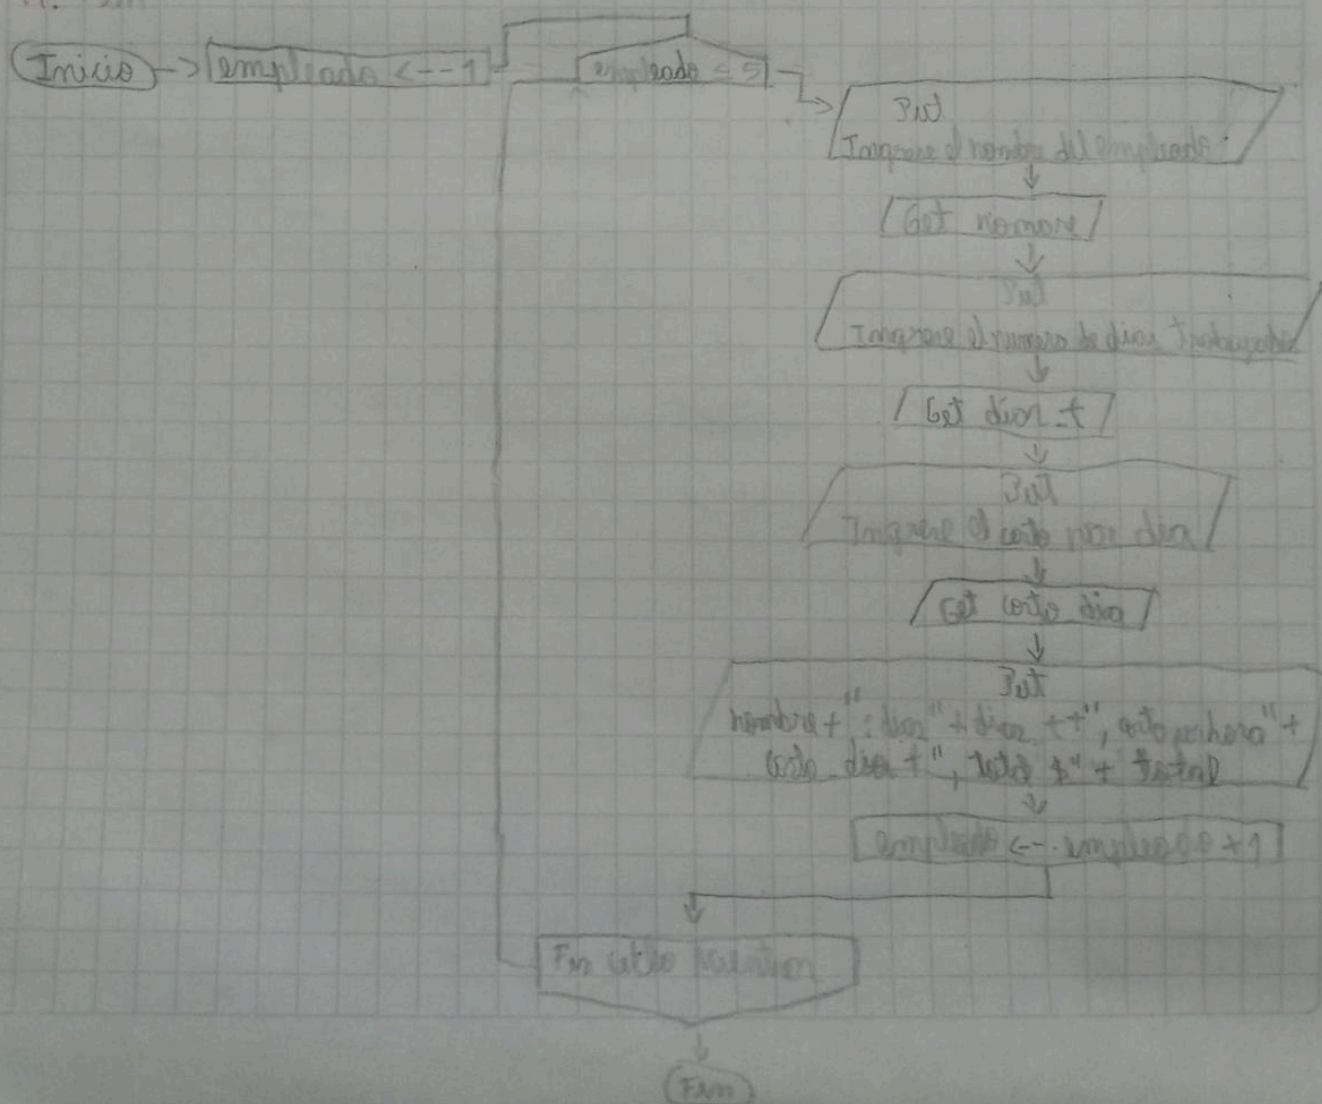 Fin
Inicio
empleado <--1
empleado = 5
Put
Ingrese el nombre del empleado:
Get nombre
Put
Ingrese el numero de dias trabajados
Get dias_t
Put
Ingrese el costo por dia
Get costo dia
Put
nombre+": dias"+dias_t+", costo por hora"+
costo_dia+", total $"+total
empleado <-- empleado +1
Fin ciclo mientras
Fin